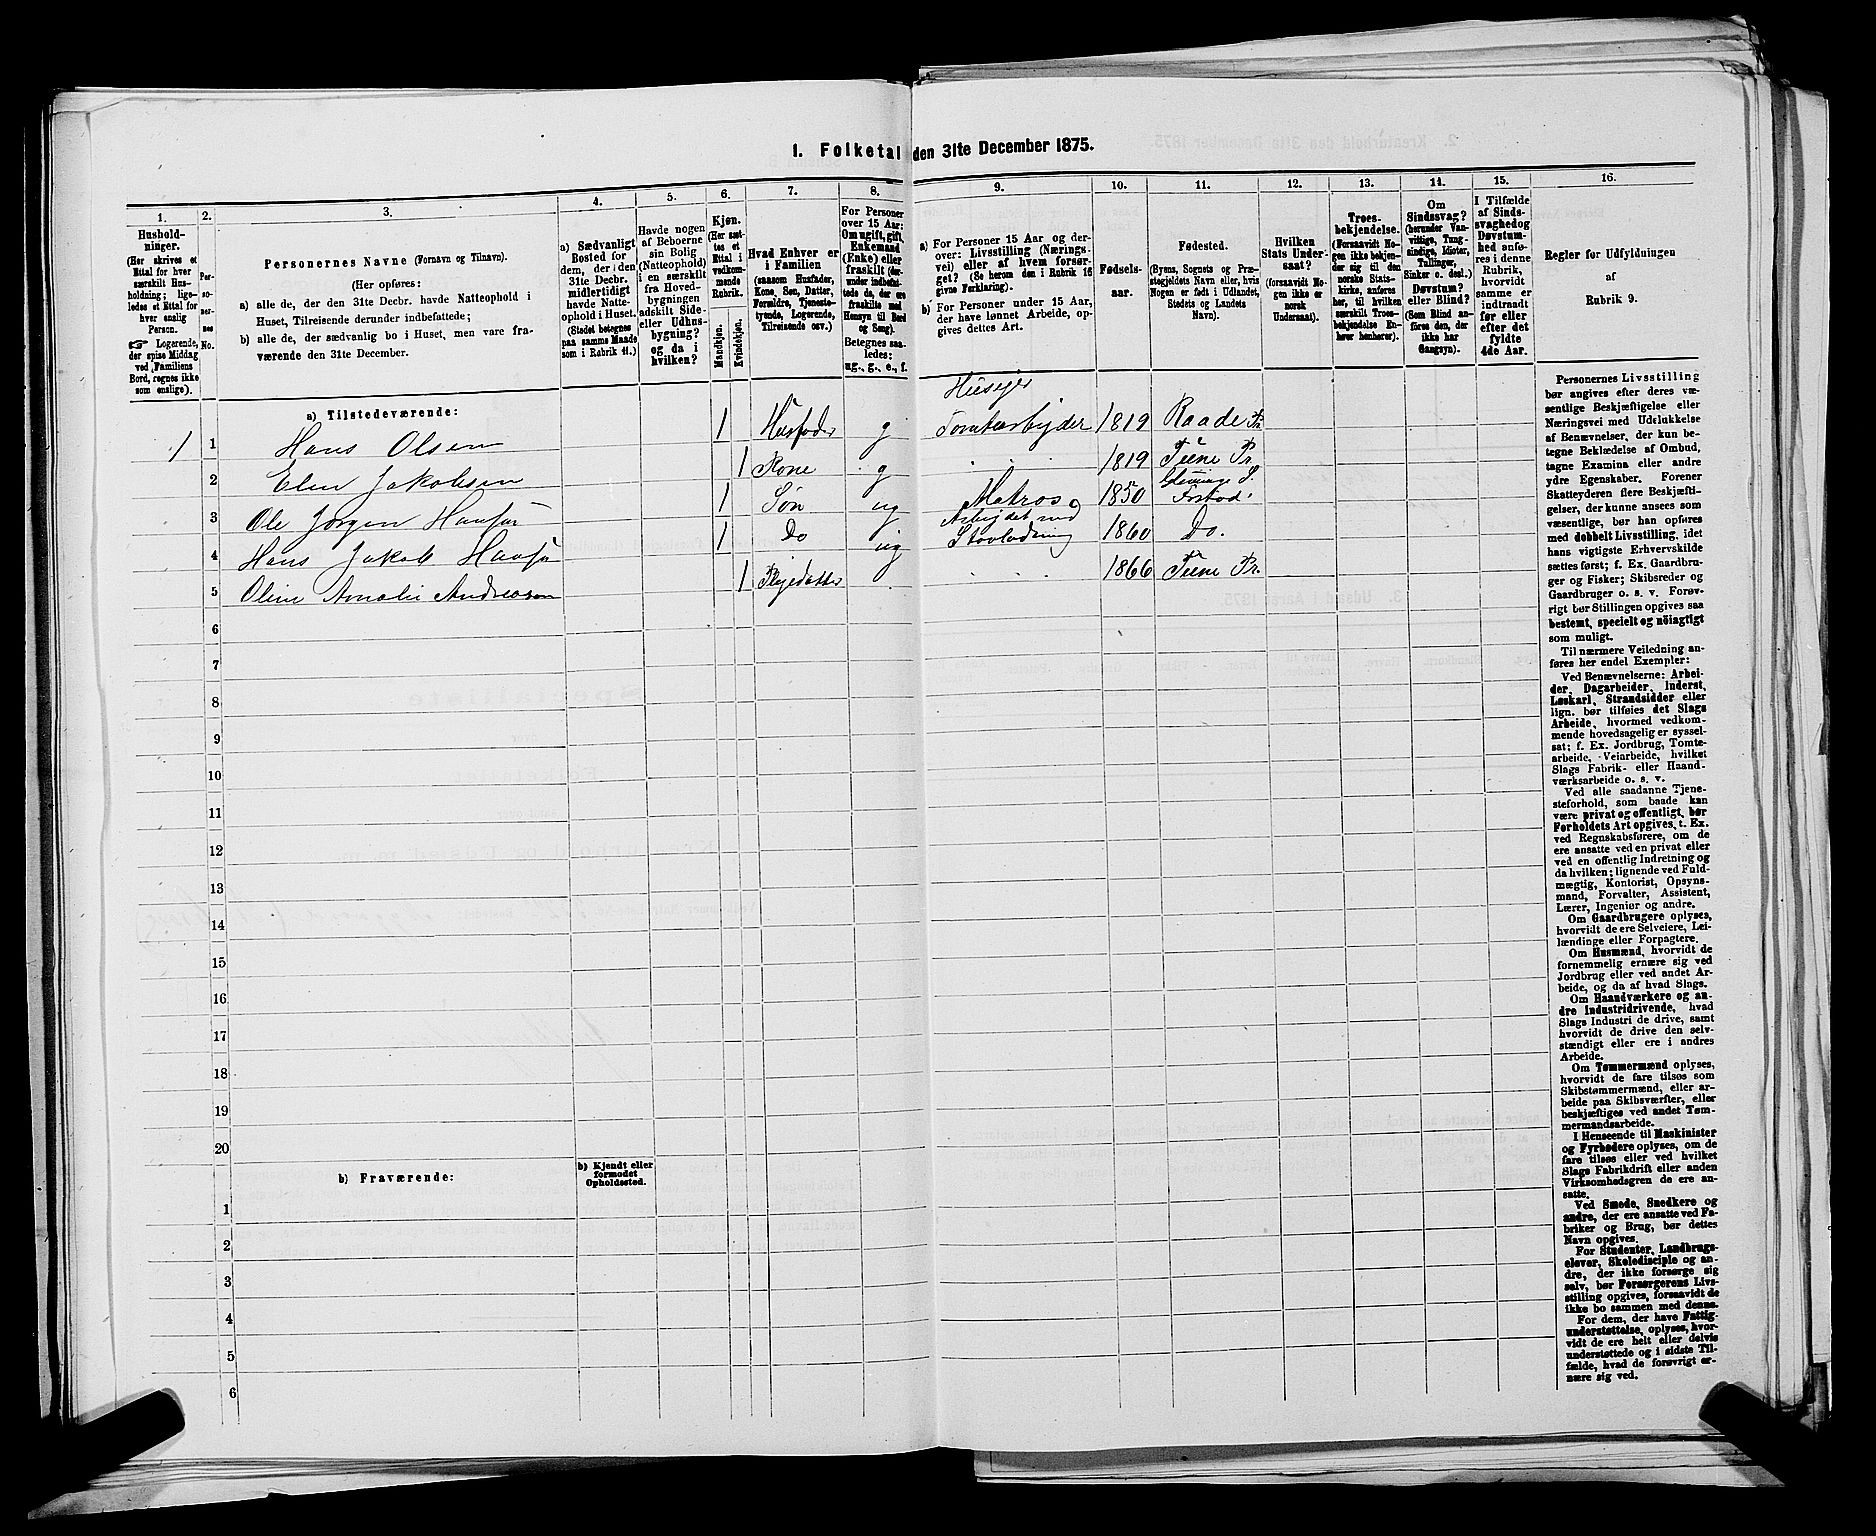 1. Folketal den 31te December 1875.
1.
2.
3.
4.
5.
6.
7.
8.
9.
10.
11.
12.
13.
14.
15.
16.
Hushold-
ninger.
(Her skrives et
Ettal for hver
særskilt Hus-
holdning; lige-
ledes et Ettal for
hver enslig
Person.
☞ Logerende,
der spise Middag
ved Familiens
Bord, regnes ikke
som enslige).
Per-
so-
ner-
nes
No.
Personernes Navne (Fornavn og Tilnavn).
(Her opføres:
a) alle de, der den 31te Decbr. havde Natteophold i
Huset, Tilreisende derunder indbefattede;
b) alle de, der sædvanlig bo i Huset, men vare fra-
værende den 31te December.
a) Sædvanligt
Bosted for
dem, der den
31te Decbr.
midlertidigt
havde Natte-
ophold i Huset.
(Stedet betegnes
paa samme Maade
som i Rubrik 11.)
Havde nogen
af Beboerne
sin Bolig
(Natteophold)
i en særskilt
fra Hoved-
bygningen
adskilt Side-
eller Udhus-
bygning?
og da i
hvilken?
Kjøn.
(Her sæt-
tes et
Ettal i
vedkom-
mende
Rubrik.
Mandkjøn.
Kvindekjøn.
Hvad Enhver er
i Familien
(saasom Husfader,
Kone, Søn, Datter,
Forældre, Tjeneste-
tyende, Logerende,
Tilreisende osv.)
For Personer
over 15 Aar:
Om ugift, gift,
Enkemand
(Enke) eller
fraskilt (der-
under indbefat-
tede de, der ere
fraskilte med
Hensyn til Bord
og Seng).
Betegnes saa-
ledes:
ug., g., e., f.
a) For Personer 15 Aar og der-
over: Livsstilling (Nærings-
vei) eller af hvem forsør-
get? (Se herom den i Rubrik 16
givne Forklaring).
b) For Personer under 15 Aar,
der have lønnet Arbeide, op-
gives dettes Art.
Fødsels-
aar.
Fødested.
(Byens, Sognets og Præ-
stegjeldets Navn eller, hvis
Nogen er født i Udlandet,
Stedets og Landets
Navn).
Hvilken
Stats Under-
saat?
(forsaavidt No-
gen ikke er
norsk
Undersaat).
Troes-
bekjendelse.
(Forsaavidt No-
gen ikke bekjen-
der sig til den
norske Stats-
kirke, anføres
her, til hvilken
særskilt Troes-
bekjendelse En-
hver henhører).
Om
Sindssvag?
(herunder Van-
vittige, Tung-
sindige, Idioter,
Tullinger,
Sinker o. desl.)
Døvstum?
eller Blind?
(Som Blind an-
føres den, der
ikke har
Gangsyn).
I Tilfælde
af Sinds-
svaghed og
Døvstum-
hed anfø-
res i denne
Rubrik,
hvorvidt
samme er
indtraadt
før eller
efter det
fyldte
4de Aar.
Regler for Udfyldningen
af
Rubrik 9.
a) Tilstedeværende:
Husejer
1 1 Hans Olsen 1 Husfader g Tomtearbejder 1819 Raade Pr.
2 Elen Jakobsen 1 Kone g 1819 Tune Pr.
3 Ole Jørgen Hansen 1 Søn ug Matros 1850
4 Hans Jakob Hansen 1 Do ug Arbejdet med 1860 Do.
5 Oline Amalie Andreasen 1 Plejedatter 1866 Tune Pr.
6
7
8
9
10
11
12
13
14
15
16
17
18
19
20
b) Fraværende:
b) Kjendt eller
formodet
Opholdssted.
1
2
3
4
5
6
Personernes Livsstilling
bør angives efter deres væ-
sentlige Beskjæftigelse eller
Næringsvei med Udelukkelse
af Benævnelser, der kun be-
tegne Beklædelse af Ombud,
tagne Examina eller andre
ydre Egenskaber. Forener
Skatteyderen flere Beskjæfti-
gelser, der kunne ansees som
væsentlige, bør han opføres
med dobbelt Livsstilling, idet
hans vigtigste Erhvervskilde
sættes først; f. Ex. Gaardbru-
ger og Fisker; Skibsreder og
Gaardbruger o. s. v. Forøv-
rigt bør Stillingen opgives saa
bestemt, specielt og nöiagtigt
som muligt.
Til nærmere Veiledning an-
føres her endel Exempler:
Ved Benævnelserne: Arbei-
der, Dagarbeider, Inderst,
Løskarl, Strandsidder eller
lign. bør tilføies det Slags
Arbeide, hvormed vedkom-
mende hovedsagelig er syssel-
sat; f. Ex. Jordbrug, Tomte-
arbeide, Veiarbeide, hvilket
Slags Fabrik- eller Haand-
værksarbeide o. s. v.
Ved alle saadanne Tjene-
steforhold, som baade kan
være privat og offentligt, bør
Forholdets Art opgives, t. Ex.
ved Regnskabsførere, om de
ere ansatte ved en privat eller
ved en offentlig Indretning og
da hvilken; lignende ved Fuld-
mægtig, Kontorist, Opsyns-
mand, Forvalter, Assistent,
Lærer, Ingeniør og andre.
Om Gaardbrugere oplyses,
hvorvidt de ere Selveiere, Lei-
lændinge eller Forpagtere.
Om Husmænd, hvorvidt de
fornemmelig ernære sig ved
Jordbrug eller ved andet Ar-
beide, og da af hvad Slags.
Om Haandværkere og an-
dre Industridrivende, hvad
Slags Industri de drive, samt
hvorvidt de drive den selv-
stændigt eller ere i andres
Arbeide.
Om Tømmermænd oplyses,
hvorvidt de fare tilsøs som
Skibstømmermænd, eller ar-
beide paa Skibsværfter, eller
beskjæftiges ved andet Tøm-
mermandsarbeide.
I Henseende til Maskinister
og Fyrbødere oplyses, om de
fare tilsøs eller ved hvilket
Slags Fabrikdrift eller anden
Virksomhedsgren de ere an-
satte.
Ved Smede, Snedkere og
andre, der ere ansatte ved Fa-
briker og Brug, bør dettes
Navn opgives.
For Studenter, Landbrugs-
elever, Skoledisciple og an-
dre, der ikke forsørge sig
selv, bør Forsørgerens Livs-
stilling opgives, forsaavidt de
ikke bo sammen med denne.
For dem, der have Fattig-
understøttelse, oplyses, hvor-
vidt de ere helt eller delvis
understøttede og i sidste Til-
fælde, hvad de forøvrigt er-
nære sig ved.